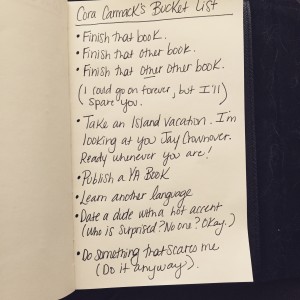 Cora Carmack's Bucket List
• Finish that book.
• Finish that other book.
• Finish that other other book.
(I could go on forever, but I'll
spare you.)
• Take an Island vacation. I'm
looking at you Jay Crownover.
Ready whenever you are!
• Publish a YA Book
• Learn another language
• Date a dude with a hot accent
(Who is surprised? No one? Okay.)
• Do something that scares me
(Do it anyway).